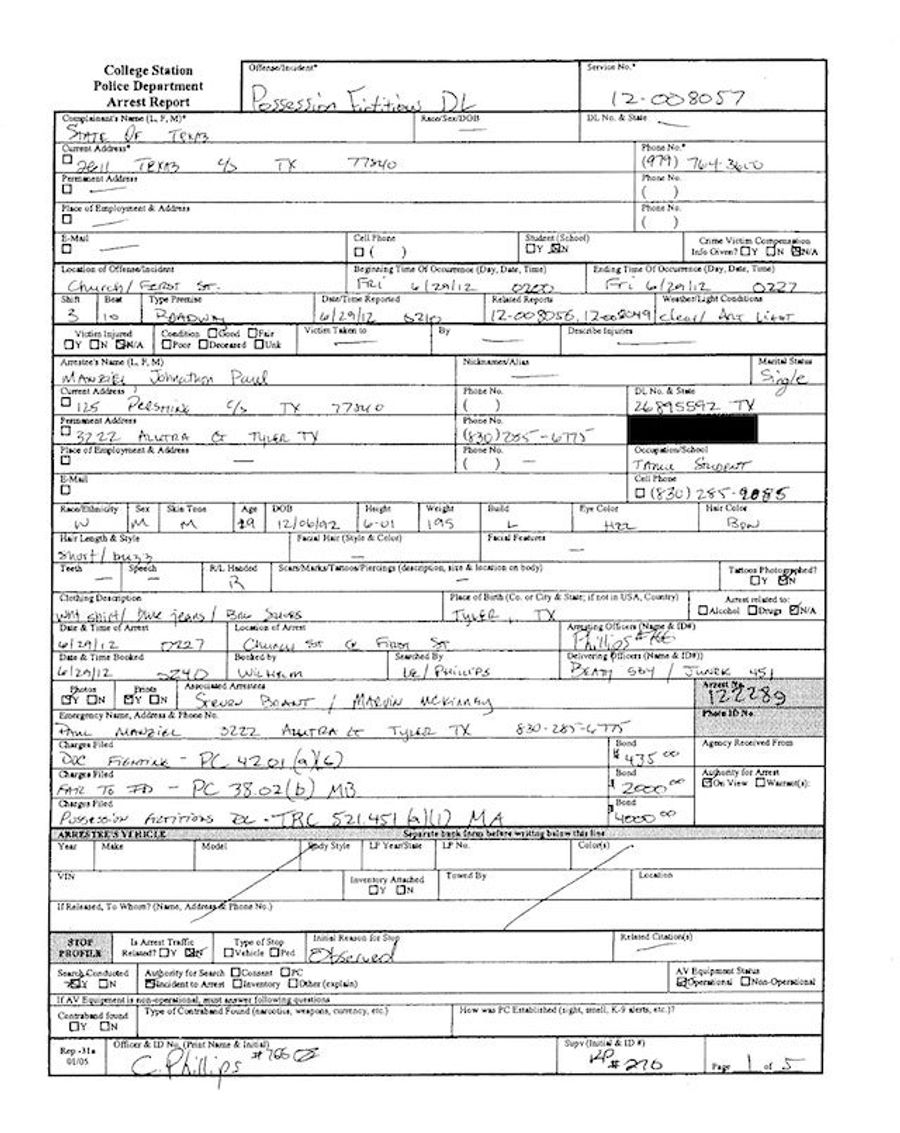 College Station
Police Department
Arrest Report
Offense/Incident*
Possession Fictitious DL
Service No.*
12-008057
Complainant's Name (L, F, M)*
State Of Texas
Race/Sex/DOB
DL No. & State
Current Address*
2611 Texas C/S TX 77840
Phone No.*
(979) 764-3600
Permanent Address
Phone No.
( )
Place of Employment & Address
Phone No.
( )
E-Mail
Cell Phone
( )
Student (School)
Y N
Crime Victim Compensation
Info Given? Y N N/A
Location of Offense/Incident
Church/ First St.
Beginning Time Of Occurrence (Day, Date, Time)
Fri 6/29/12 0200
Ending Time Of Occurrence (Day, Date, Time)
Fri 6/29/12 0227
Shift
3
Beat
10
Type Premise
Roadway
Date/Time Reported
6/29/12 0210
Related Reports
12-008056, 12-008049
Weather/Light Conditions
clear/ Art Light
Victim Injured
Y N N/A
Condition Good Fair
Poor Deceased Unk
Victim Taken to
By
Describe Injuries
Arrestee's Name (L, F, M)
Manziel Johnathon Paul
Nicknames/Alias
Marital Status
Single
Current Address
125 Pershing C/S TX 77840
Phone No.
( )
DL No. & State
26895592 TX
Permanent Address
3222 Ct Tyler TX
Phone No.
(830) 285-6775
Place of Employment & Address
Phone No.
( )
Occupation/School
TAMU Student
E-Mail
Cell Phone
(830) 285-9085
Race/Ethnicity
W
Sex
M
Skin Tone
M
Age
19
DOB
12/06/92
Height
6-01
Weight
195
Build
L
Eye Color
Hzl
Hair Color
Bon
Hair Length & Style
short/ buzz
Facial Hair (Style & Color)
Facial Features
Teeth
Speech
R/L Handed
R
Scars/Marks/Tattoos/Piercings (description, size & location on body)
Tattoos Photographed?
Y N
Clothing Description
wht shirt/ blue jeans/ Brn Shoes
Place of Birth (Co. or City & State; if not in USA, Country)
Tyler, TX
Arrest related to:
Alcohol Drugs N/A
Date & Time of Arrest
6/29/12 0227
Location of Arrest
Church St @ First St
Arresting Officers (Name & ID#)
Phillips #766
Date & Time Booked
6/29/12 0240
Booked by
Wilhelm
Searched By
/ Phillips
Delivering Officers (Name & ID#))
Brady 584 / Junek 451
Photos
Y N
Prints
Y N
Associated Arrestees
Steven Brant / Marvin McKinney
Arrest No.
122289
Emergency Name, Address & Phone No.
Paul Manziel 3222 Ct Tyler TX 830-285-6775
Photo ID No.
Charges Filed
DOC Fighting - PC 4201(a)(6)
Bond
$ 435 00
Agency Received From
Charges Filed
Fail To ID - PC 38.02(b) MB
Bond
$ 2000 00
Authority for Arrest
On View Warrant(s):
Charges Filed
Possession Fictitious DL - TRC 521.451 (a)(1) MA
Bond
$ 4000 00
ARRESTEE'S VEHICLE Separate back form before writing below this line
Year
Make
Model
Body Style
LP Year/State
LP No.
Color(s)
VIN
Inventory Attached
Y N
Towed By
Location
If Released, To Whom? (Name, Address & Phone No.)
STOP
PROFILE
Is Arrest Traffic
Related? Y N
Type of Stop
Vehicle Ped
Initial Reason for Stop
Observed
Related Citation(s)
Search Conducted
Y N
Authority for Search Consent PC
Incident to Arrest Inventory Other (explain)
AV Equipment Status
Operational Non-Operational
If AV Equipment is non-operational, must answer following questions
Contraband found
Y N
Type of Contraband Found (narcotics, weapons, currency, etc.)
How was PC Established (sight, smell, K-9 alerts, etc.)?
Rep -31a
01/05
Officer & ID No. (Print Name & Initial)
C. Phillips #766
Supv (Initial & ID #)
#270
Page 1 of 5